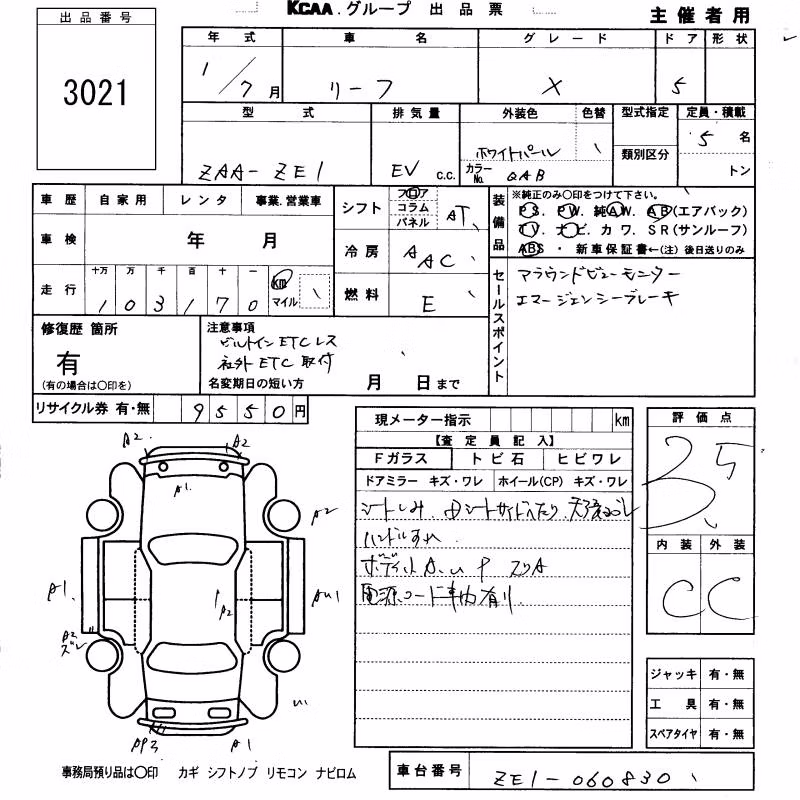 KCAA.グループ 出品票 主催者用
出品番号
3021
年式 車名 グレード ドア 形状
1/7月 リーフ X 5
型式 排気量 外装色 色替 型式指定 定員・積載
ZAA-ZE1 EV c.c. ホワイトパール カラーNo. QAB 類別区分 5名 トン
車歴 自家用 レンタ 事業.営業車
車検 年 月
走行 十万 万 千 百 十 一 km マイル
103170
シフト フロア コラム パネル AT
冷房 AAC
燃料 E
装備品 ※純正のみ○印をつけて下さい。
PS. PW. 純AW. AB(エアバック)
TV. ナビ. カワ. SR(サンルーフ)
ABS・新車保証書←(注)後日送りのみ
セールスポイント
アラウンドビューモニター
エマージェンシーブレーキ
修復歴 箇所
有
(有の場合は○印を)
注意事項
ビルトインETCレス
社外ETC取付
名変期日の短い方 月 日まで
リサイクル券 有・無 9550円
現メーター指示 km
【査定員記入】
Fガラス トビ石 ヒビワレ
ドアミラー キズ・ワレ ホイール(CP) キズ・ワレ
シートしみ シートサイドへたり
ハンドルすれ
電源コード車内有り
評価点
3.5
内装 外装
C C
A2 A2
A1
A2
A1 AU1
A2
A2
ズレ
PP3 A1
ジャッキ 有・無
工具 有・無
スペアタイヤ 有・無
事務局預り品は○印 カギ シフトノブ リモコン ナビロム
車台番号 ZE1-060830